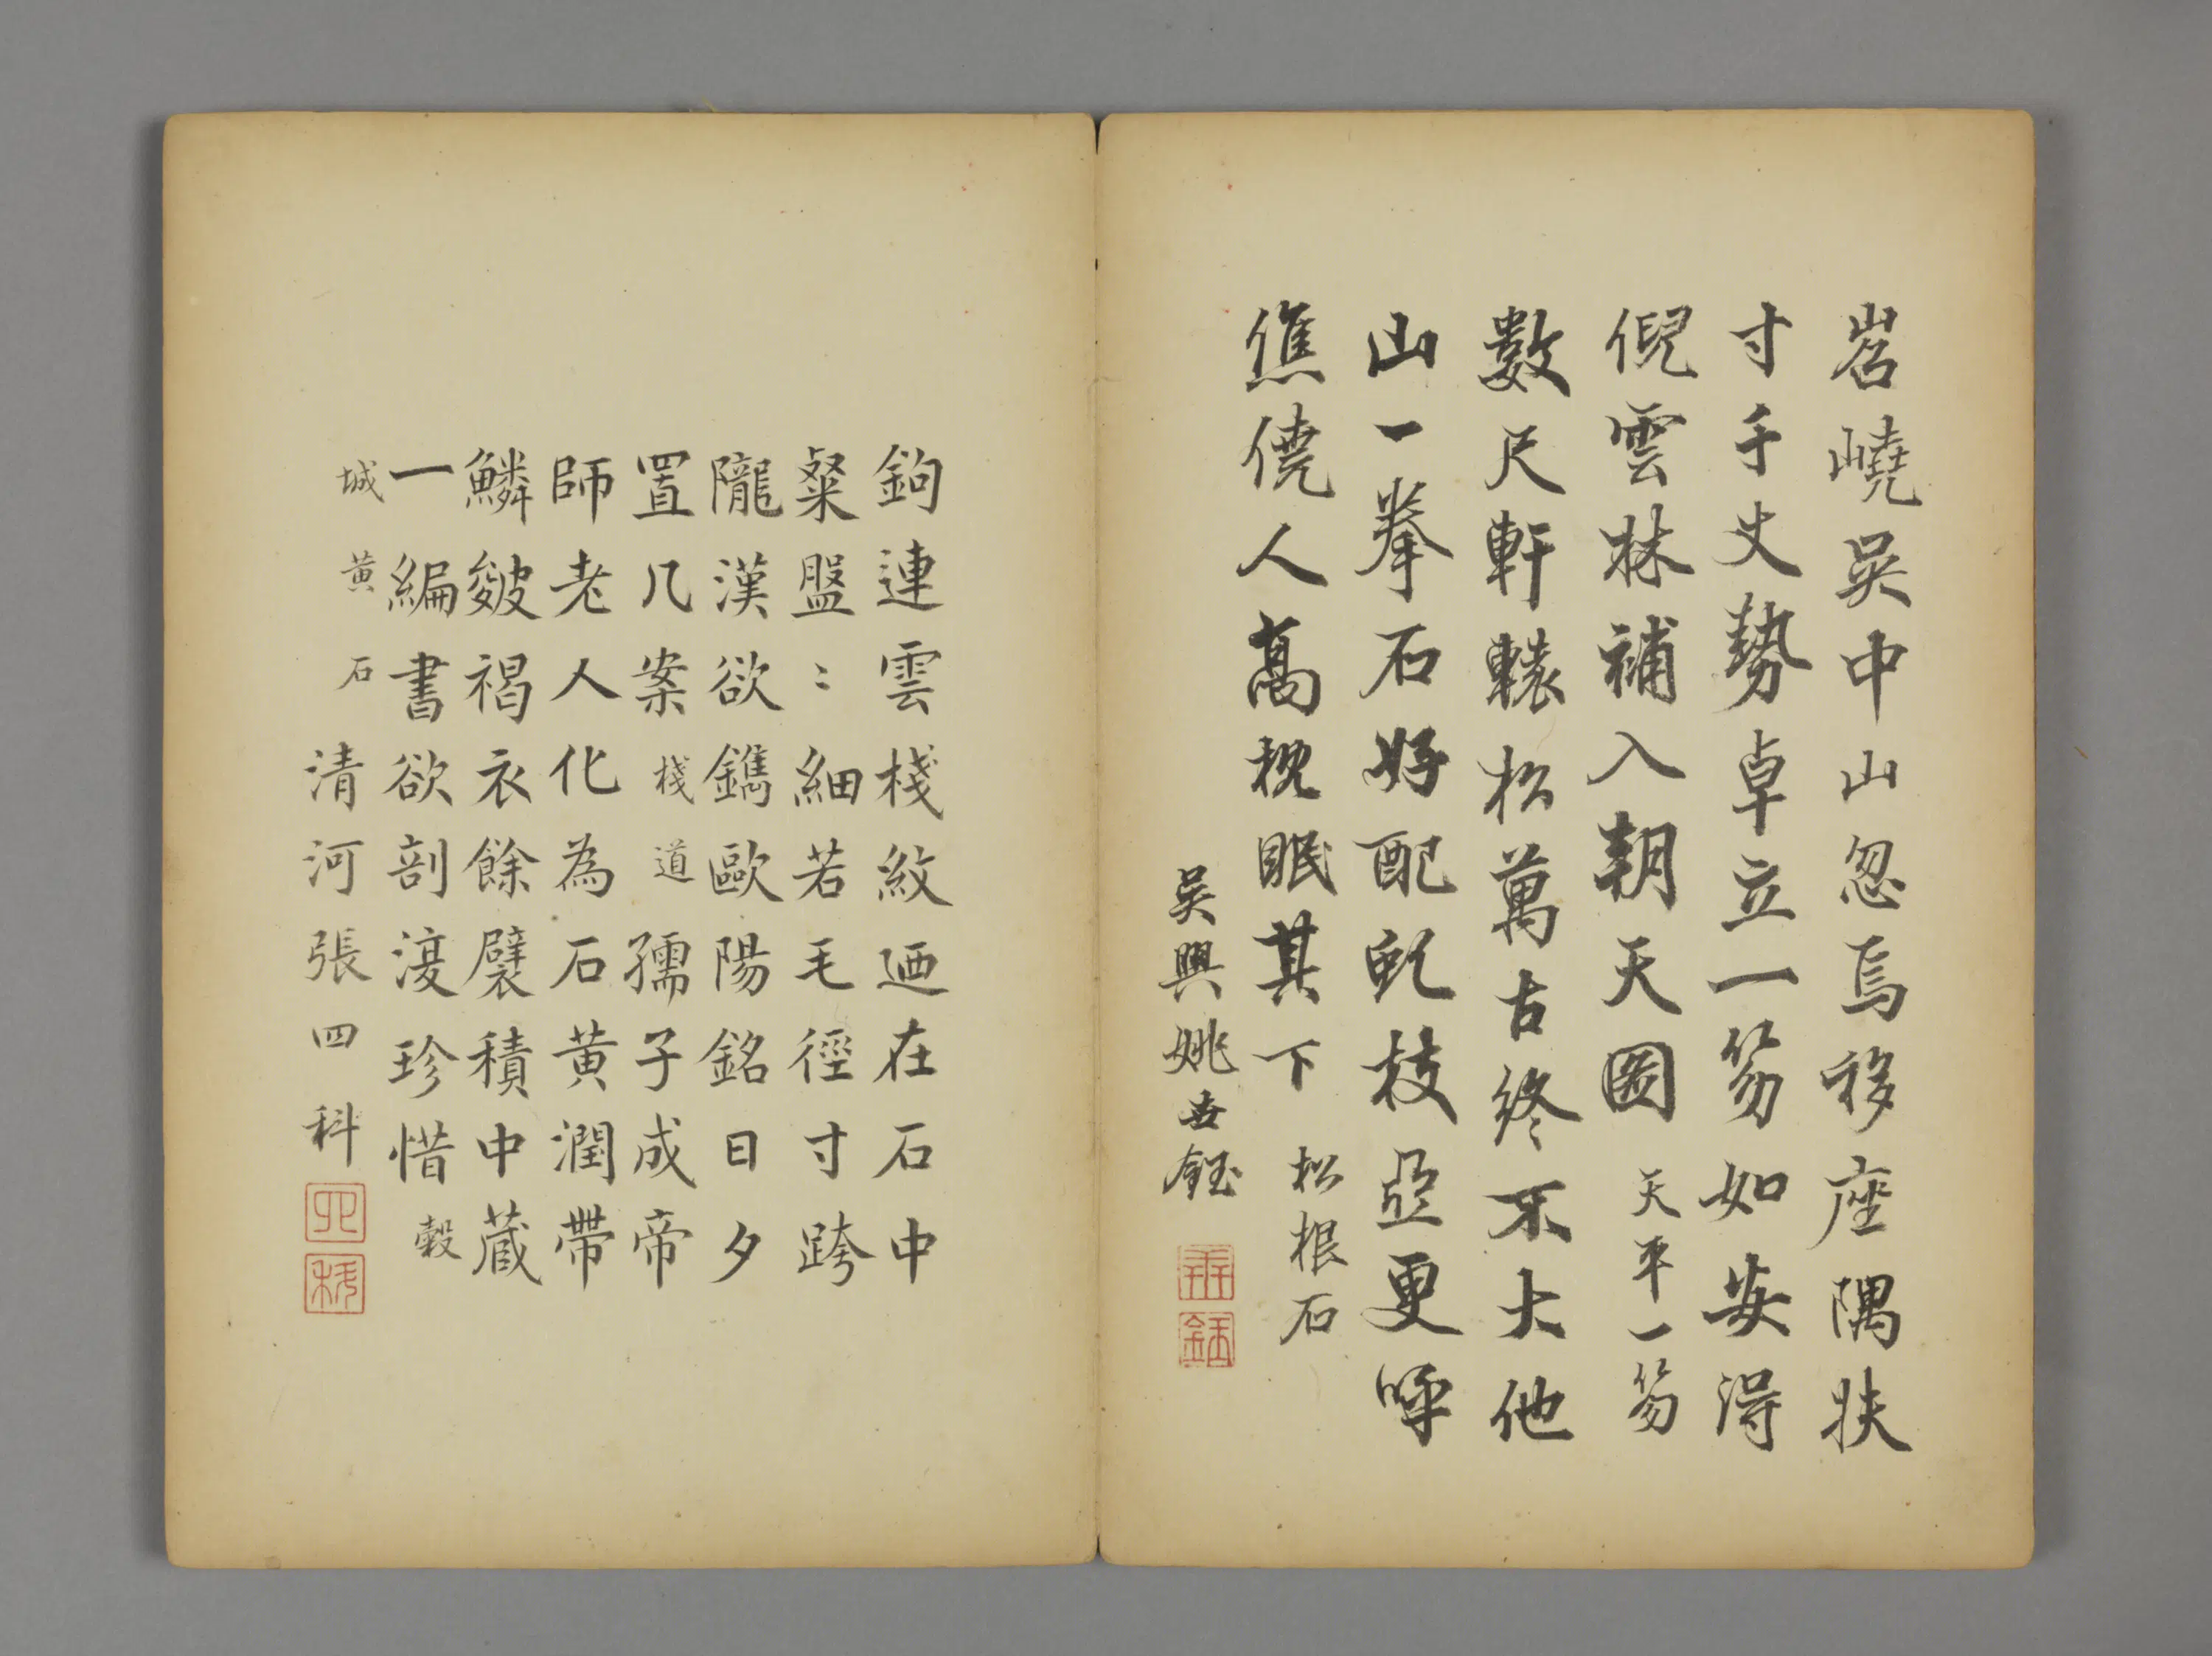 岧嶢吳中山忽焉移座隅扶
寸千丈勢卓立一笏如安得
倪雲林補入朝天圖 天平一笏
數尺軒轅松萬古終不大他
山一拳石好配虬枝亞更呼
僬僥人高枕眠其下 松根石
吳興姚世鈺
鉤連雲棧紋迺在石中
粲盤〻細若毛徑寸跨
隴漢欲鐫歐陽銘日夕
置几案 棧道 孺子成帝
師老人化為石黃潤帶
鱗皴褐衣餘襞積中藏
一編書欲剖濅珍惜 穀
城黃石
清河張四科
四
科